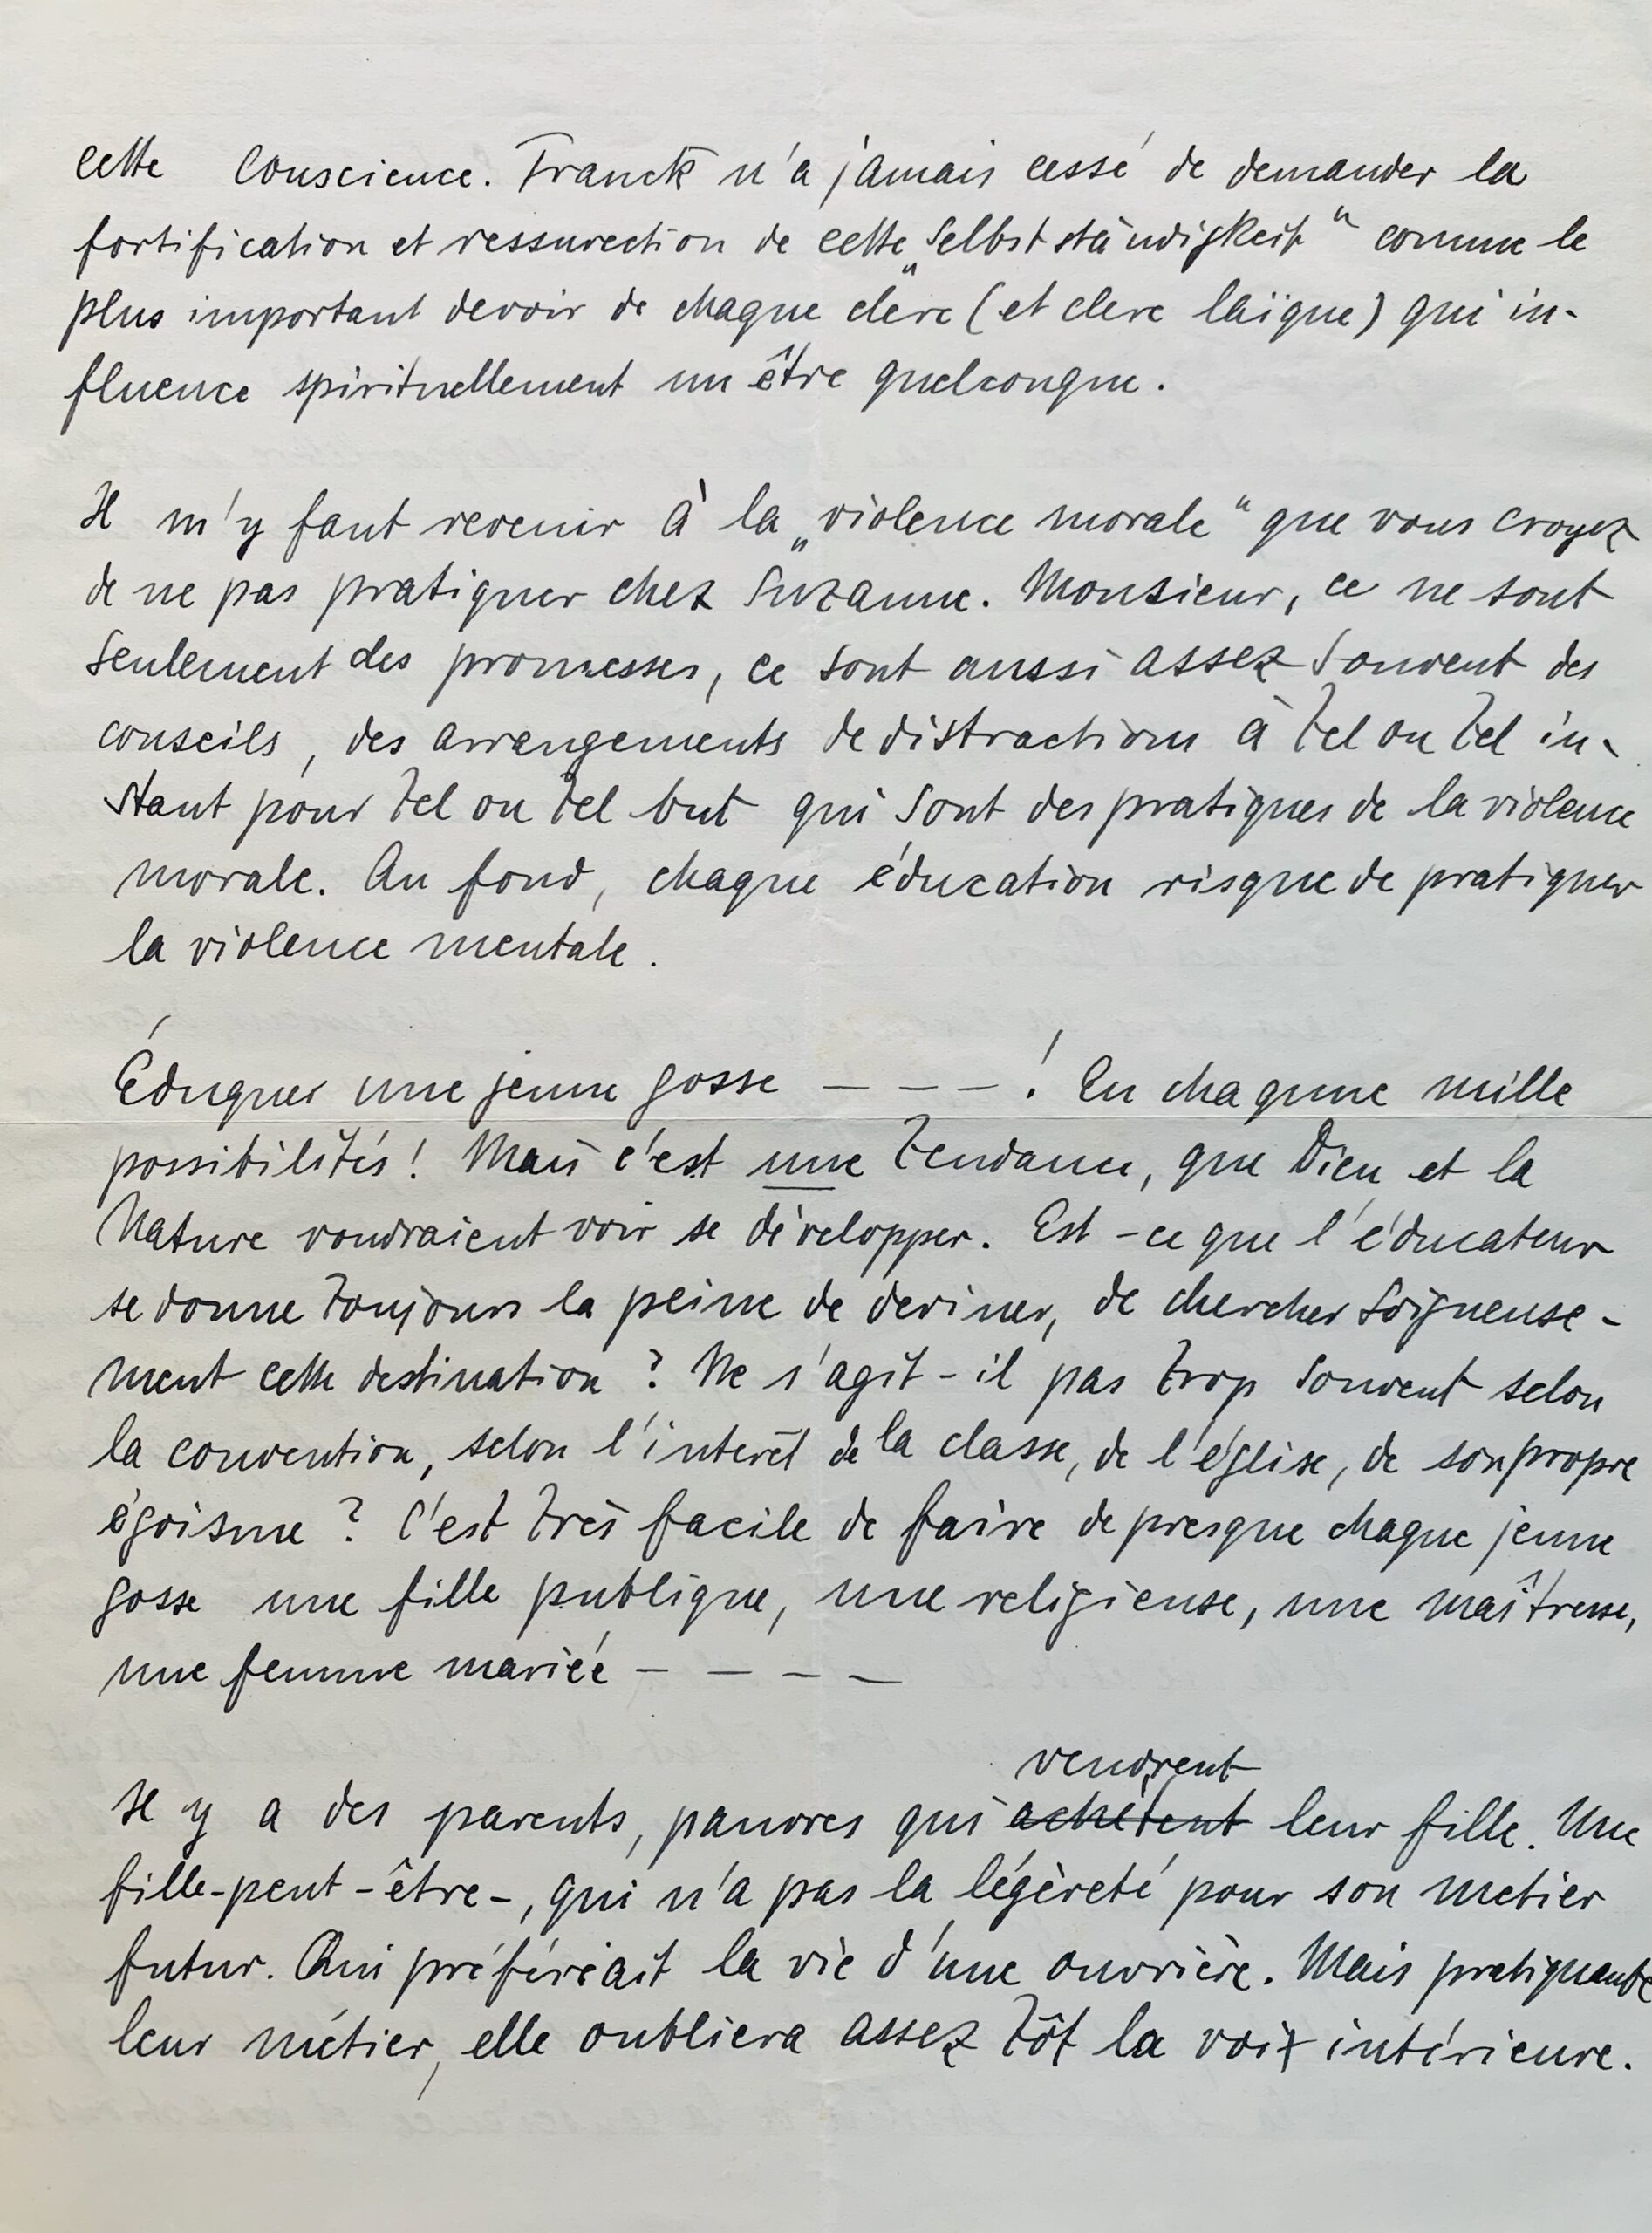 cette Conscience. Franck n'a jamais cessé de demander la
fortification et ressurection de cette „Selbstständigkeit“ comme le
plus important devoir de chaque clerc (et clerc laïque) qui in-
fluence spirituellement un être quelconque.
Il m'y faut revenir à la „violence morale“ que vous croyez
de ne pas pratiquer chez Suzanne. Monsieur, ce ne sont
seulement des promesses, ce sont aussi assez souvent des
conseils, des arrangements de distractions à tel ou tel in-
stant pour tel ou tel but qui sont des pratiques de la violence
morale. Au fond, chaque éducation risque de pratiquer
la violence mentale.
Éduquer une jeune gosse – – – ! En chaqune mille
possibilités! Mais c'est une tendance, que Dieu et la
Nature voudraient voir se développer. Est-ce que l'éducateur
se donne toujours la peine de deviner, de chercher soigneuse-
ment cette destination? Ne s'agit-il pas trop souvent selon
la convention, selon l'interêt de la classe, de l'église, de son propre
égoisme? C'est très facile de faire de presque chaque jeune
gosse une fille publique, une religieuse, une maîtresse,
une femme mariée – – – –
vendrent
Il y a des parents, pauvres qui achètent leur fille. Une
fille-peut-être-, qui n'a pas la légèreté pour son metier
futur. Qui préfèreait la vie d'une ouvrière. Mais pratiquante
leur métier, elle oubliera assez tôt la voix intérieure.